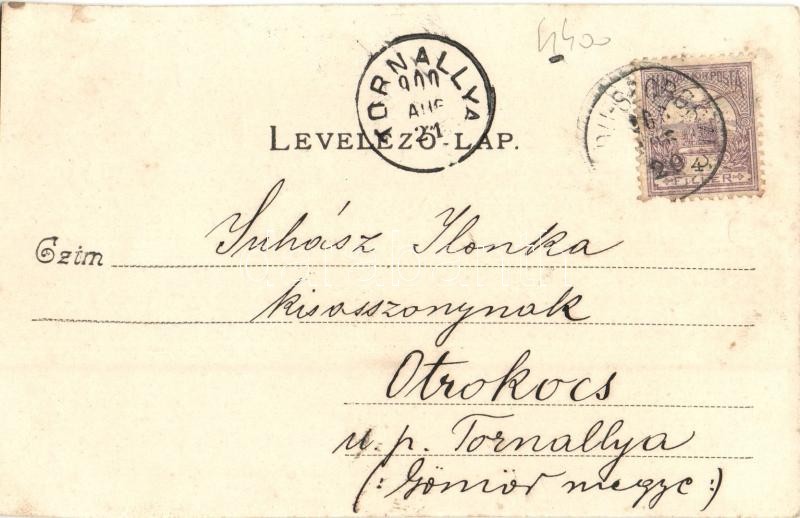 4400
TORNALLYA
900
AUG
21
MAGY. KIR. POSTA
20
FILLÉR
LEVELEZŐ-LAP.
Czim Juhász Ilonka
kisasszonynak
Otrokocs
u. p. Tornallya
(: Gömör megye :)